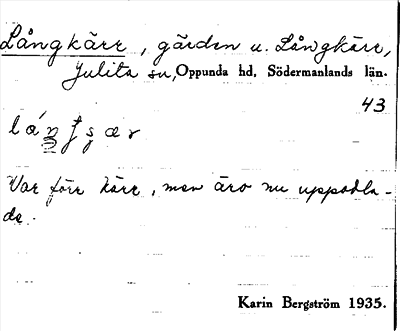 Långkärr, gården u. Långkärr,
Julita sn, Oppunda hd, Södermanlands län.
43
Var förr kärr, men äro nu uppodla-
de.
Karin Bergström 1935.